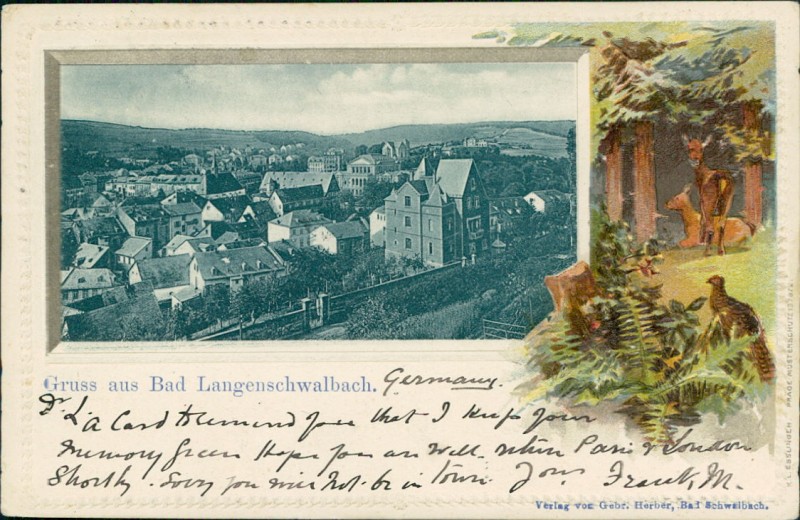 Gruss aus Bad Langenschwalbach. Germany.
Dr L a Card to remind you that I keep your
memory green Hope you are well. return Paris & London
Shortly. Sorry you will not be in town. Yours Frank, M.
Verlag von Gebr. Herber, Bad Schwalbach.